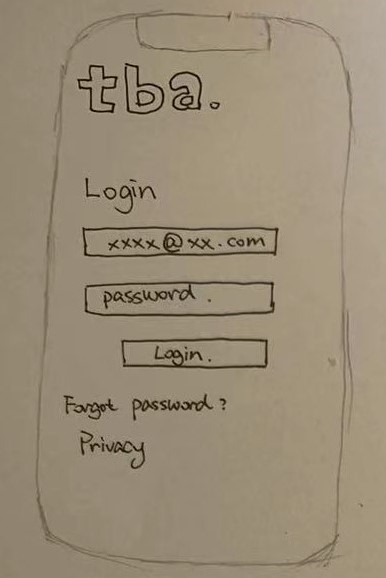 tba.
Login
xxxx@xx.com
password.
Login.
Forgot password?
Privacy